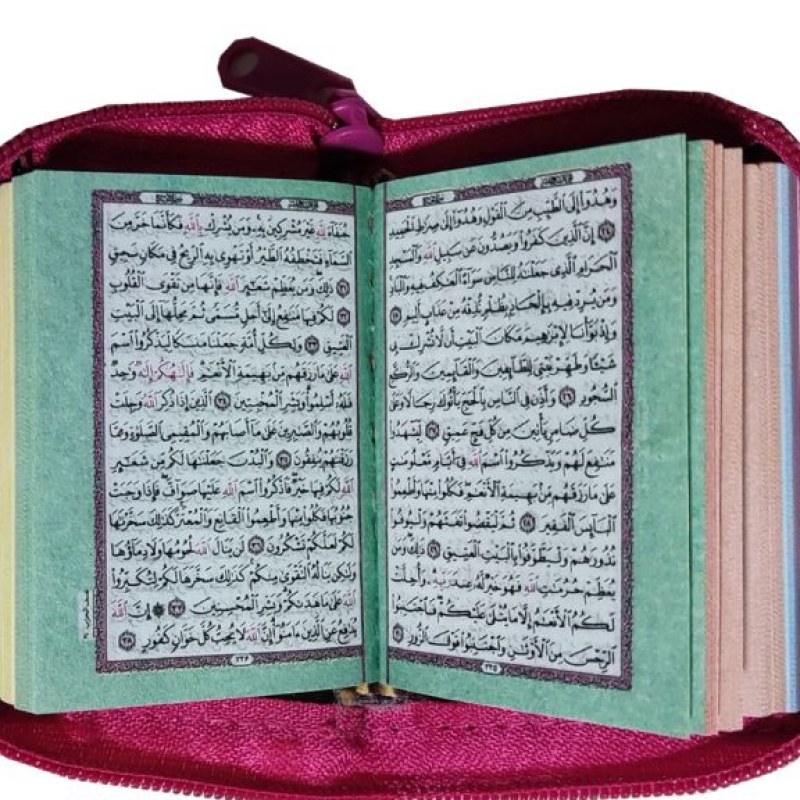 وَهُدُوٓا إِلَى ٱلطَّيِّبِ مِنَ ٱلْقَوْلِ وَهُدُوٓا إِلَىٰ صِرَٰطِ ٱلْحَمِيدِ
٢٤ إِنَّ ٱلَّذِينَ كَفَرُوا وَيَصُدُّونَ عَن سَبِيلِ ٱللَّهِ وَٱلْمَسْجِدِ
ٱلْحَرَامِ ٱلَّذِى جَعَلْنَٰهُ لِلنَّاسِ سَوَآءً ٱلْعَٰكِفُ فِيهِ وَٱلْبَادِ
وَمَن يُرِدْ فِيهِ بِإِلْحَادٍۭ بِظُلْمٍ نُّذِقْهُ مِنْ عَذَابٍ أَلِيمٍ ٢٥
وَإِذْ بَوَّأْنَا لِإِبْرَٰهِيمَ مَكَانَ ٱلْبَيْتِ أَن لَّا تُشْرِكْ بِى
شَيْـًٔا وَطَهِّرْ بَيْتِىَ لِلطَّآئِفِينَ وَٱلْقَآئِمِينَ وَٱلرُّكَّعِ
ٱلسُّجُودِ ٢٦ وَأَذِّن فِى ٱلنَّاسِ بِٱلْحَجِّ يَأْتُوكَ رِجَالًا وَعَلَىٰ
كُلِّ ضَامِرٍ يَأْتِينَ مِن كُلِّ فَجٍّ عَمِيقٍ ٢٧ لِّيَشْهَدُوا
مَنَٰفِعَ لَهُمْ وَيَذْكُرُوا ٱسْمَ ٱللَّهِ فِىٓ أَيَّامٍ مَّعْلُومَٰتٍ
عَلَىٰ مَا رَزَقَهُم مِّنۢ بَهِيمَةِ ٱلْأَنْعَٰمِ فَكُلُوا مِنْهَا وَأَطْعِمُوا
ٱلْبَآئِسَ ٱلْفَقِيرَ ٢٨ ثُمَّ لْيَقْضُوا تَفَثَهُمْ وَلْيُوفُوا
نُذُورَهُمْ وَلْيَطَّوَّفُوا بِٱلْبَيْتِ ٱلْعَتِيقِ ٢٩ ذَٰلِكَ وَمَن
يُعَظِّمْ حُرُمَٰتِ ٱللَّهِ فَهُوَ خَيْرٌ لَّهُۥ عِندَ رَبِّهِۦ وَأُحِلَّتْ
لَكُمُ ٱلْأَنْعَٰمُ إِلَّا مَا يُتْلَىٰ عَلَيْكُمْ فَٱجْتَنِبُوا
ٱلرِّجْسَ مِنَ ٱلْأَوْثَٰنِ وَٱجْتَنِبُوا قَوْلَ ٱلزُّورِ ٣٠
٣٣٥
حُنَفَآءَ لِلَّهِ غَيْرَ مُشْرِكِينَ بِهِۦ وَمَن يُشْرِكْ بِٱللَّهِ فَكَأَنَّمَا خَرَّ مِنَ
ٱلسَّمَآءِ فَتَخْطَفُهُ ٱلطَّيْرُ أَوْ تَهْوِى بِهِ ٱلرِّيحُ فِى مَكَانٍ سَحِيقٍ
٣١ ذَٰلِكَ وَمَن يُعَظِّمْ شَعَٰٓئِرَ ٱللَّهِ فَإِنَّهَا مِن تَقْوَى ٱلْقُلُوبِ
٣٢ لَكُمْ فِيهَا مَنَٰفِعُ إِلَىٰٓ أَجَلٍ مُّسَمًّى ثُمَّ مَحِلُّهَآ إِلَى ٱلْبَيْتِ
ٱلْعَتِيقِ ٣٣ وَلِكُلِّ أُمَّةٍ جَعَلْنَا مَنسَكًا لِّيَذْكُرُوا ٱسْمَ
ٱللَّهِ عَلَىٰ مَا رَزَقَهُم مِّنۢ بَهِيمَةِ ٱلْأَنْعَٰمِ فَإِلَٰهُكُمْ إِلَٰهٌ وَٰحِدٌ
فَلَهُۥٓ أَسْلِمُوا وَبَشِّرِ ٱلْمُخْبِتِينَ ٣٤ ٱلَّذِينَ إِذَا ذُكِرَ ٱللَّهُ وَجِلَتْ
قُلُوبُهُمْ وَٱلصَّٰبِرِينَ عَلَىٰ مَآ أَصَابَهُمْ وَٱلْمُقِيمِى ٱلصَّلَوٰةِ وَمِمَّا
رَزَقْنَٰهُمْ يُنفِقُونَ ٣٥ وَٱلْبُدْنَ جَعَلْنَٰهَا لَكُم مِّن شَعَٰٓئِرِ
ٱللَّهِ لَكُمْ فِيهَا خَيْرٌ فَٱذْكُرُوا ٱسْمَ ٱللَّهِ عَلَيْهَا صَوَآفَّ فَإِذَا وَجَبَتْ
جُنُوبُهَا فَكُلُوا مِنْهَا وَأَطْعِمُوا ٱلْقَانِعَ وَٱلْمُعْتَرَّ كَذَٰلِكَ سَخَّرْنَٰهَا
لَكُمْ لَعَلَّكُمْ تَشْكُرُونَ ٣٦ لَن يَنَالَ ٱللَّهَ لُحُومُهَا وَلَا دِمَآؤُهَا
وَلَٰكِن يَنَالُهُ ٱلتَّقْوَىٰ مِنكُمْ كَذَٰلِكَ سَخَّرَهَا لَكُمْ لِتُكَبِّرُوا
ٱللَّهَ عَلَىٰ مَا هَدَىٰكُمْ وَبَشِّرِ ٱلْمُحْسِنِينَ ٣٧ ۞ إِنَّ ٱللَّهَ
يُدَٰفِعُ عَنِ ٱلَّذِينَ ءَامَنُوٓا إِنَّ ٱللَّهَ لَا يُحِبُّ كُلَّ خَوَّانٍ كَفُورٍ ٣٨
٣٣٦